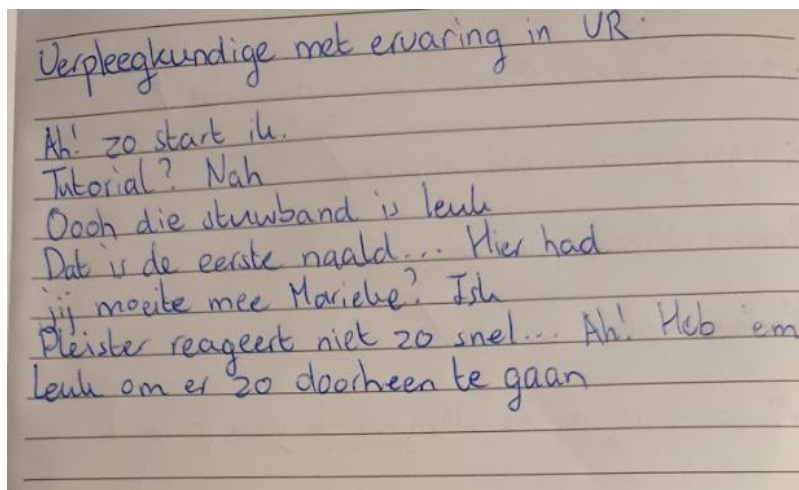 Verpleegkundige met ervaring in VR.
Ah! zo start ik.
Tutorial? Nah
Oooh die stuwband is leuk
Dat is de eerste naald... Hier had
jij moeite mee Marieke? Ish
Pleister reageert niet zo snel... Ah! Heb em
Leuk om er zo doorheen te gaan